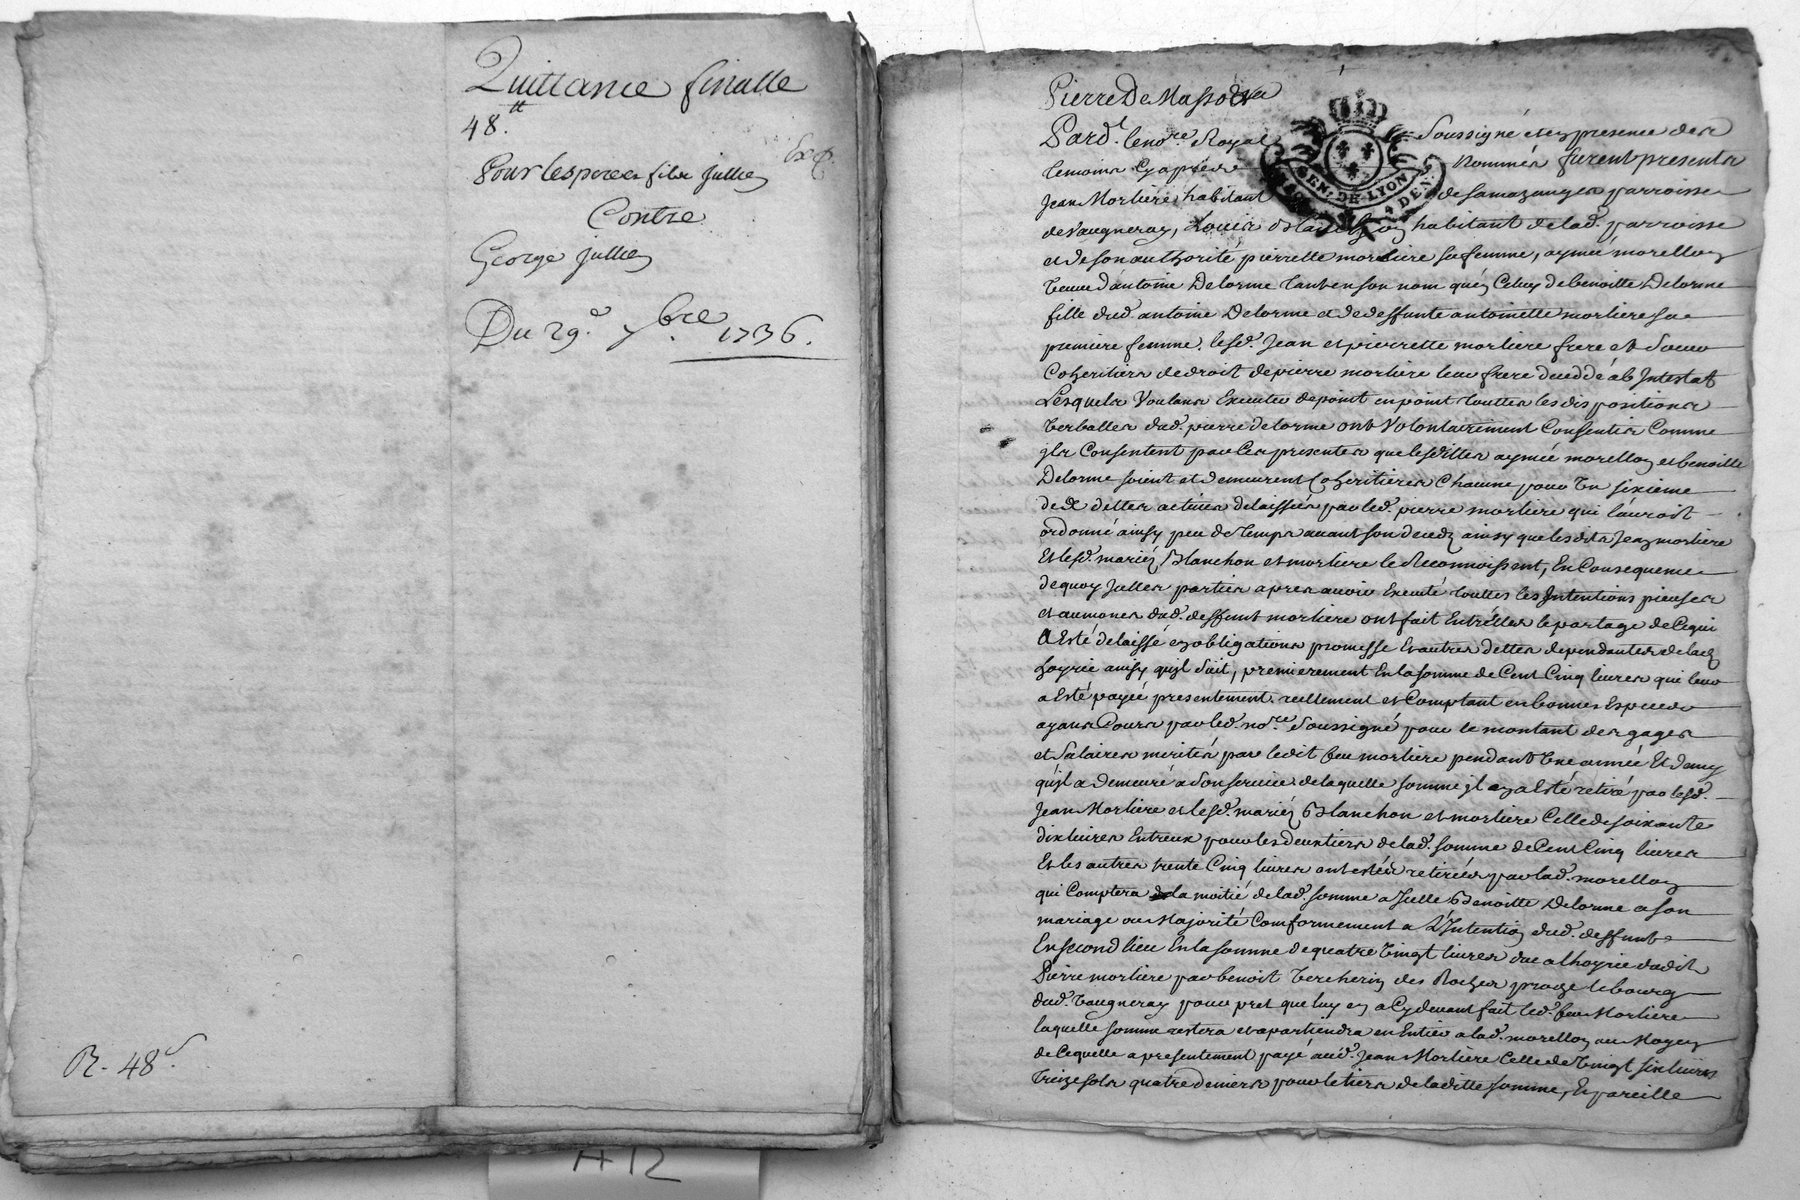 Quittance finalle
48.tt
Exp.
Pour les pere et fils Jullien
Contre
George Jullien
Du 29.e 7.bre 1736.
R. 48 s
A 12
Pierre De Masso &a
GEN. DE LYON
4 DEN.
Pard.t le no.re Royal Soussigné et en presence des
temoins cy apres Nommés furent presents
Jean Morliere habitant de Samazanges parroisse
de Vaugneray, Louis Blanchon habitant de lad. parroisse
et de son authorité pierrette morliere sa femme, aymée morellon
veuve d'antoine Delorme tant en son nom qu'en Celuy de benoitte Delorme
fille dud. antoine Delorme et de deffunte antoinette morliere sa
premiere femme. lesd. Jean et pierrette morliere frere et Soeur
Coheritiers de droit de pierre morliere leur frere decedde ab Intestat
Lesquels Voulans Executer de point en point touttes les dispositions
verballes dud. pierre delorme ont Volontairement Consentis Comme
jls Consentent par les presentes que lesdittes aymée morellon et benoitte
Delorme soient et demeurent Coheritieres Chacune pour Un sixieme
des dettes actives delaissées par led. pierre morliere qui l'auroit
ordonné ainsy peu de temps avant son decedz ainsy que lesdits Jean morliere
Et lesd. mariez Blanchon et morliere le Reconnoissent, En Consequence
de quoy Jcelles parties apres avoir Executé touttes les Intentions pieuses
et aumones dud. deffunt morliere ont fait Entr'elles le partage de Ce qui
A Esté delaissé en obligations promesse Et autres dettes dependantes de lad.
hoyrie ainsy qu'jl Suit, premierement En la somme de Cent Cinq livres qui leur
a Esté payée presentement reellement et Comptant en bonnes Especes
ayans Cours par led. no.re Soussigné pour le montant des gages
et Salaires merités par ledit feu morliere pendant Une année Et demy
qu'jl a demeuré a Son service de laquelle somme jl en a Esté retiré par lesd.
Jean Morliere et lesd. mariez Blanchon et morliere Celle de soixante
dix livres Entreux pour les deux tiers de lad. somme de Cent Cinq livres
Et les autres trente Cinq livres ont estées retirées par lad. morellon
qui Comptera la moitié de lad. somme a Jcelle Benoitte Delorme a son
mariage ou Majorité Conformement a L'Intention dud. deffunt
En second lieu En la somme de quatre Vingt livres due a l'hoyrie dudit
Pierre morliere par benoit Vercherin des Roches proche le bourg
dud. Vaugneray pour pret que luy en a Cy devant fait led. feu Morliere
laquelle somme restera et apartiendra en Entier a lad. morellon au Moyen
de Ce quelle a presentement payé aud. Jean Morliere Celle de Vingt six livres
Treize sols quatre deniers pour le tiers de laditte somme, Et pareille